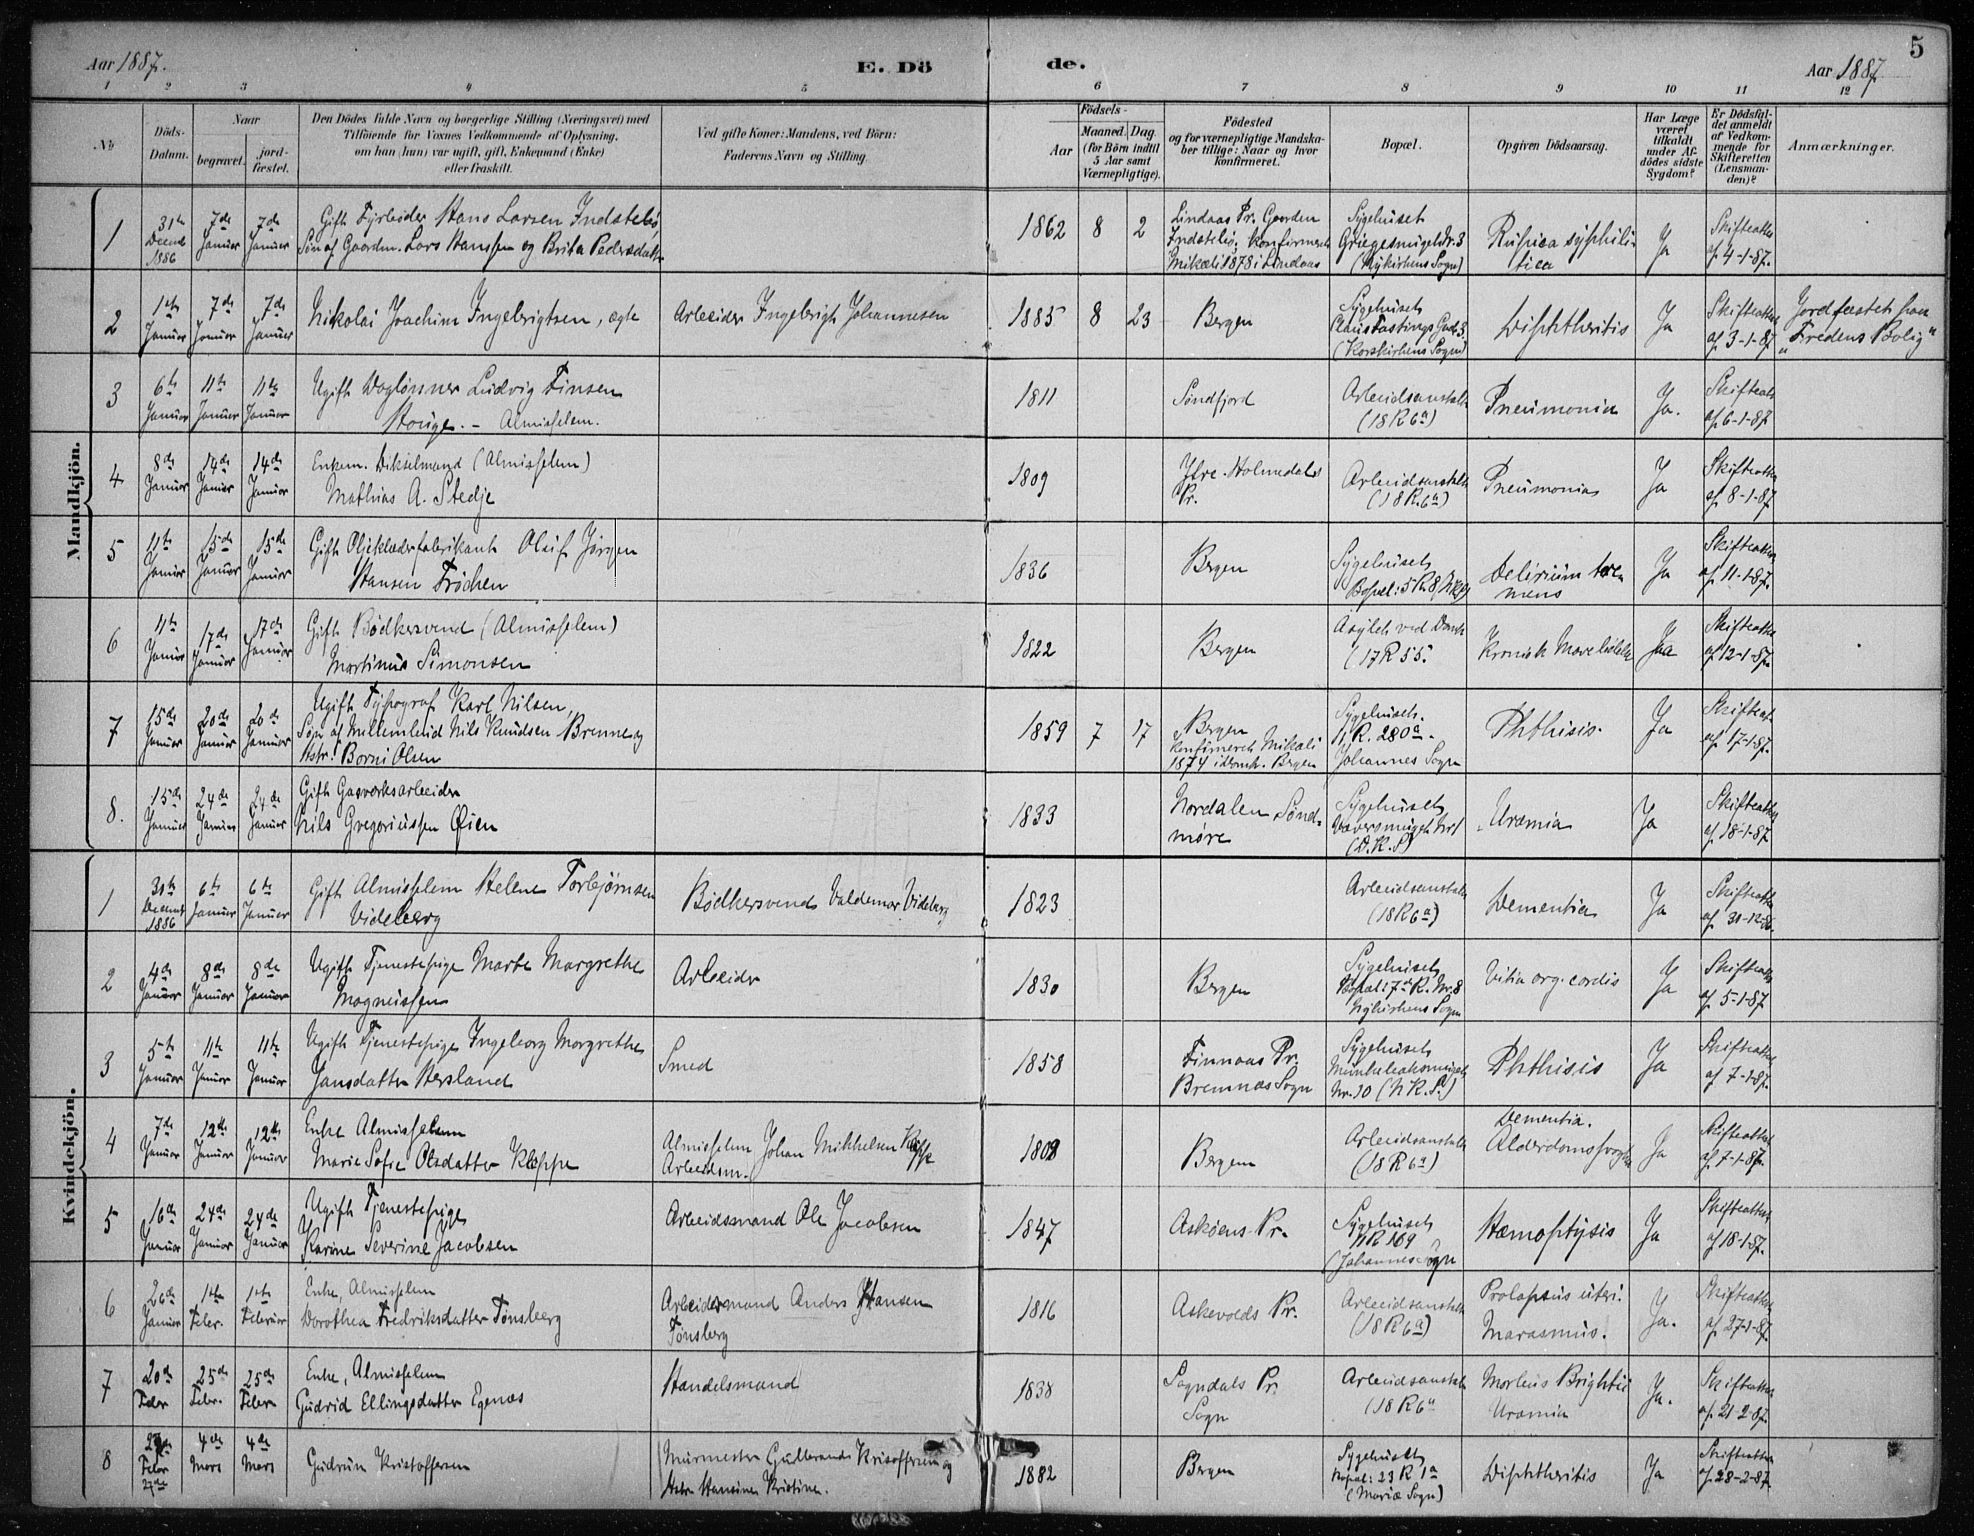 Aar 1887. E. Dö
de. Aar 1887 5
1 2 3 4 5 6 7 8 9 10 11 12
No
Döds-
Datum.
Naar
begravet.
jord-
fæstet.
Den Dödes fulde Navn og borgerlige Stilling (Næringsvei) med
Tilföiende for Voxnes Vedkommende af Oplysning,
om han (hun) var ugift, gift, Enkemand (Enke)
eller fraskilt.
Ved gifte Koner: Mandens, ved Börn:
Faderens Navn og Stilling.
Födsels-
Aar
Maaned. Dag.
(for Börn indtil
5 Aar samt
Værnepligtige).
Födested
og for værnepligtige Mandska-
ber tillige: Naar og hvor
konfirmeret.
Bopæl.
Opgiven Dödsaarsag.
Har Læge
været
tilkaldt
under Af-
dödes sidste
Sygdom?
Er Dödsfal-
det anmeldt
af Vedkom-
mende for
Skifteretten
(Lensman-
den)?
Anmærkninger.
Mandkjön.
1
31te
Decmb
1886
7de
Januar
7de
Januar
Gift Hans Larsen Indstebø,
Søn af Gaardm. Lars Hanssen og Brita Pedersdatter
1862 8 2
Lindaas Pr. Gaarden
konfirmeret
Mikæli 1878 i Lindaas
Sygehuset
Nr. 3
(Nykirkens Sogn)
Rupica syphili-
tica
Ja
Skifteattest
af 4-1-87.
2
1ste
Januar
7de
Januar
7de
Januar
Nikolai Joachim Ingebrigtsen, ægte
Arbeider Ingebrigt Johannesen
1885 8 23
Bergen
Sygehuset
Claus Fastings Gade 3.
(Korskirkens Sogn)
Diphtheritis
Ja
Skifteattest
af 3-1-87
Jordfæstet paa
"Fredens Bolig"
3
6te
Januar
11te
Januar
11te
Januar
Ugift Daglønner Ludvig Finsen
Houge. - Almisselem.
1811
Søndfjord
Arbeidsanstalt
(18 R 6a)
Pneumonia
Ja.
Skifteattest
af 6-1-87
4
8de
Januar
14de
Januar
14de
Januar
Enkem. (Almisselem)
Mathias A. Stedje
1809
Ytre Holmedals
Pr.
Arbeidsanstalt
(18 R. 6a)
Pneumonia
Ja
Skifteattest
af 8-1-87
5
11te
Januar
15de
Januar
15de
Januar
Gift Oljeklædefabrikant Oluf Jørgen
Hansen Frøchen
1836
Bergen
Sygehuset
Bopæl: 5 R. 8
Delirium tre-
mens
Ja
Skifteattest
af 11-1-87.
6
11te
Januar
17de
Januar
17de
Januar
Gift Bødkersvend (Almisselem)
Martinus Simonsen
1822
Bergen
Asylet ved Domk
(17 R 55.
Kronisk Mavelidelse
Jaa
Skifteattest
af 12-1-87.
7
15de
Januar
20de
Januar
20de
Januar
Ugift Typograf Karl Nilsen,
Søn af Nils Knudsen Brenne og
Hstr. Borni Olsen
1859 7 17
Bergen
Konfirmeret Mikæli
1874 i Domk. Bergen
Sygehuset.
11 R. 280a.
Johannes Sogn
Phthisis.
Ja
Skifteat.
af 17-1-87.
8.
15de
Januar
24de
Januar
24de
Januar
Gift Gasværksarbeider
Nils Gregoriussen Øien
1833
Nordalen Sønd-
møre
Sygehuset
Nr 1
(D. K. S)
Uræmia
Ja
Skifteattest
af 18-1-87.
Kvindekjön.
1
30te
Decemb
1886
6te
Januar
6te
Januar
Gift Almisselem Helene Torbjørnsen
Videberg
Bødkersvend Valdemar Videberg
1823
Arbeidsanstalt
(18 R 6a)
Dementia
Ja
Skifteattest
af 30-12-86.
2
4de
Januar
8de
Januar
8de
Januar
Ugift Tjenestepige Marte Margrethe
Magnussen
Arbeider
1830
Bergen
Sygehuset
Bopæl: 7de R. Nr. 8
Nykirkens Sogn
Vitia org. cordis
Ja
Skifteattest
af 5-1-87.
3
5te
Januar
11te
Januar
11te
Januar
Ugift Tjenestepige Ingeborg Margrethe
Jansdatter Hersland
Smed
1858
Finnaas Pr.
Bremnæs Sogn
Sygehuset
Nr. 10 (N K. S.)
Phthisis
Ja
Skifteattest
af 7-1-87.
4
7de
Januar
12te
Januar
12te
Januar
Enke Almisselem
Marie Sofie Olsdatter Kleppe
Almisselem Johan Mikkelsen Kleppe
Arbeidsm.
1808
Bergen
Arbeidsanstalt
(18 R 6a)
Dementia.
Alderdomssvaghed
Ja
Skifteattest
af 7-1-87.
5
16de
Januar
24de
Januar
24de
Januar
Ugift Tjenestepige
Karine Severine Jacobsen
Arbeidsmand Ole Jacobsen
1847
Askøens Pr.
Sygehuset
11 R 169
(Johannes Sogn
Hæmoptysis
Ja
Skifteattest
af 18-1-87.
6
26de
Januar
1ste
Febr.
1ste
Februar
Enke, Almisselem
Dorothea Fredriksdatter Tønsberg
Arbeidsmand Anders Hansen
Tønsberg
1816
Askevolds Pr.
Arbeidsanstalt
(18 R 6a)
Prolapsus uteri.
Marasmus.
Ja.
Skifteattest
af 27-1-87.
7
20de
Febr
25de
Febr.
25de
Febr
Enke, Almisselem
Gudrid Ellingsdatter Egenæs
Handelsmand
1838
Sogndals Pr.
Sogn
Arbeidsanstalt
(18 R 6a
Morbus Brightii
Uræmia
Ja.
Skifteattest
af 21-2-87.
8
Febr
27de
4de
Mars
4de
Mars
Gudrun Kristoffersen
Murmester Gulbrand Kristoffersen og
Hstr Hansine Kristine.
1882
Bergen
Sygehuset
Bopæl: 23 R 1a
(Mariæ Sogn)
Diphtheritis
Ja
Skifteattest
af 28-2-87.